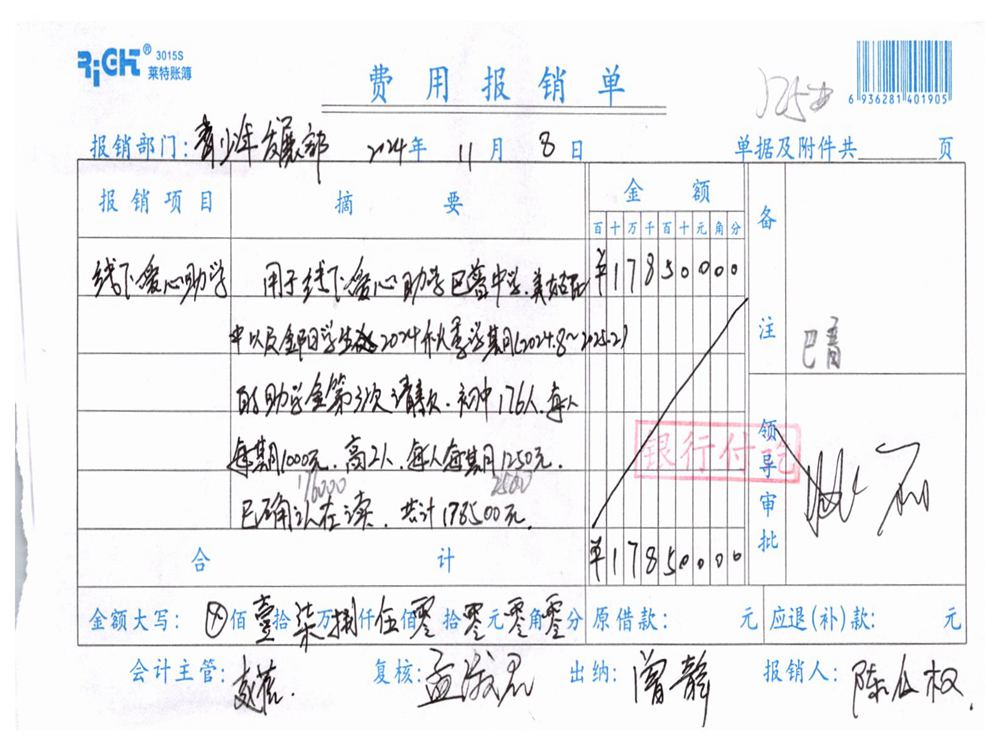 RiGH® 3015S
莱特账簿
费用报销单
6 936281 401905
报销部门:青少年发展部 2024年 11月 8日 单据及附件共 页
报销项目 摘要 金额 备注
百十万千百十元角分
线下爱心助学 用于线下爱心助学巴普中学、美姑
¥17850000
中以及 学生 2024秋季学期(2024.8~2025.2)
巴普
的助学金第3次请款.初中176人.每人
银行付讫
领导审批
每期1000元.高2人.每人每期1250元.
176000 2500
已确认在读.共计178500元.
合计 ¥17850000
金额大写:⊗佰壹拾柒万捌仟伍佰零拾零元零角零分 原借款: 元 应退(补)款: 元
会计主管: 复核:孟 出纳:曾静 报销人:陈